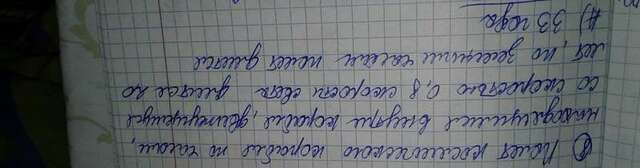 ⑧ Полет космического корабля по часам,
находящимся внутри корабля, движущемуся
со скоростью 0,8 скорости света длится 20
лет, по земным часам полет длится
А) 33 года